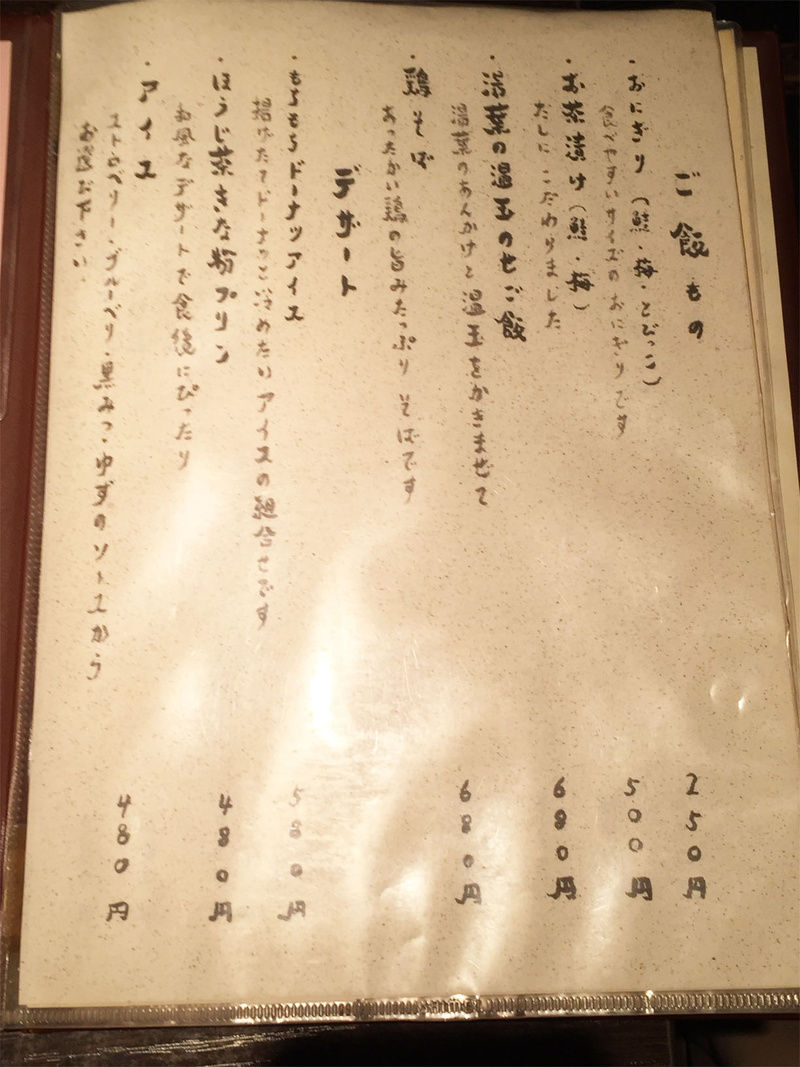 ご飯もの
・おにぎり（鮭・梅・とびっこ）
250円
食べやすいサイズのおにぎりです
・お茶漬け（鮭・梅）
500円
だしにこだわりました
・湯葉の温玉のせご飯
680円
湯葉のあんかけと温玉をかきまぜて
・鶏そば
680円
あったかい鶏の旨みたっぷりそばです
デザート
・もちもちドーナツアイス
580円
揚げたてドーナッツと冷めたいアイスの組合せです
・ほうじ茶きな粉プリン
480円
和風なデザートで食後にぴったり
・アイス
480円
ストロベリー・ブルーベリ・黒みつ・ゆずのソースから
お選び下さい。